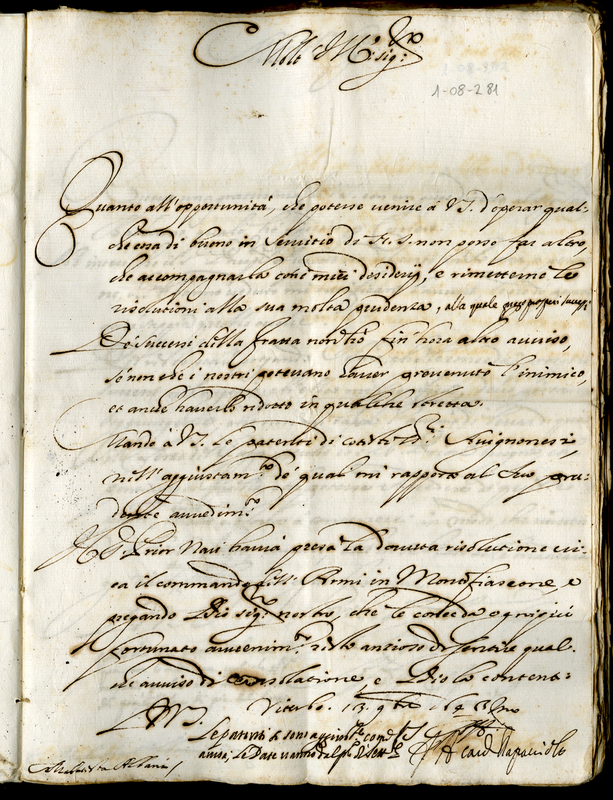 Molto Ill.re Sig.re
1-08-281
Quanto all'opportunità, che potesse venire à V.S. d'operar qual-
che cosa di buono in servitio di N.S. non posso far altro,
che accompagnarla con i miei desiderij, e rimetterne le
risolutioni alla sua molta prudenza, alla quale prego prosperi successi
De' successi della fratta non hò fin hora altro avviso,
se non che i nostri potevano haver prevenuto l'inimico,
et anche haverlo ridotto in qualche stretta.
Mando à V.S. le patenti di cotesti SS.ri Avignonesi,
nell'aggiustam.to de' quali mi rapporto al suo pru-
dente avvedim.to
Il S. Prior Nari havrà presa la dovuta risolutione cir-
ca il commando dell'Armi in Montefiascone, e
pregando Dio sig.re nostro, che le conceda ogni più
fortunato avvenim.to resto anzioso di sentire qual-
che avviso di consolatione, e Dio la contenti.
Viterbo. 13. 9bre
Le patenti
Card Rapaccioli